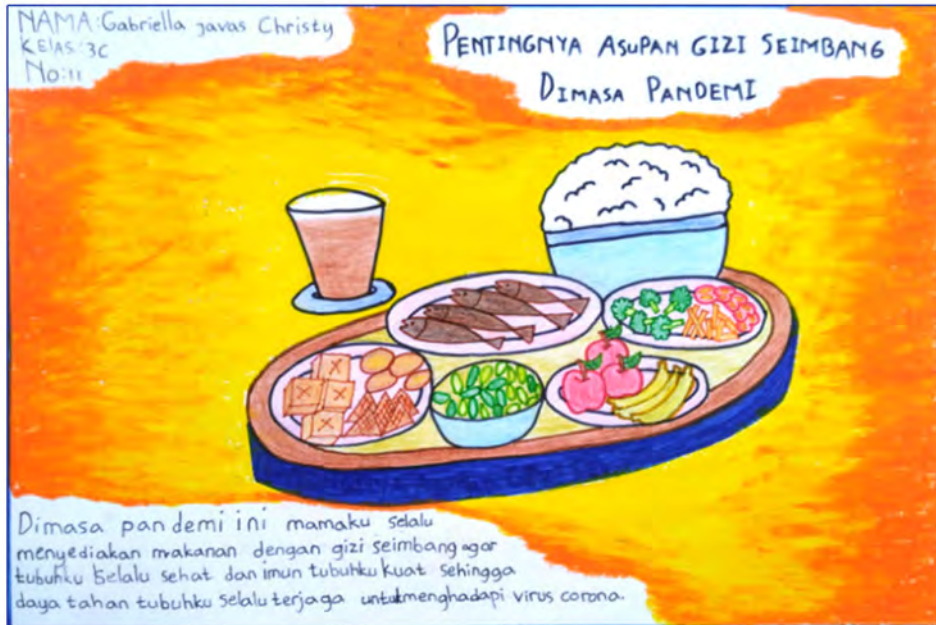 NAMA: Gabriella Javas Christy
KELAS: 3C
No: 11
PENTINGNYA ASUPAN GIZI SEIMBANG
DIMASA PANDEMI
Dimasa pandemi ini mamaku selalu
menyediakan makanan dengan gizi seimbang agar
tubuhku selalu sehat dan imun tubuhku kuat sehingga
daya tahan tubuhku selalu terjaga untuk menghadapi virus corona.